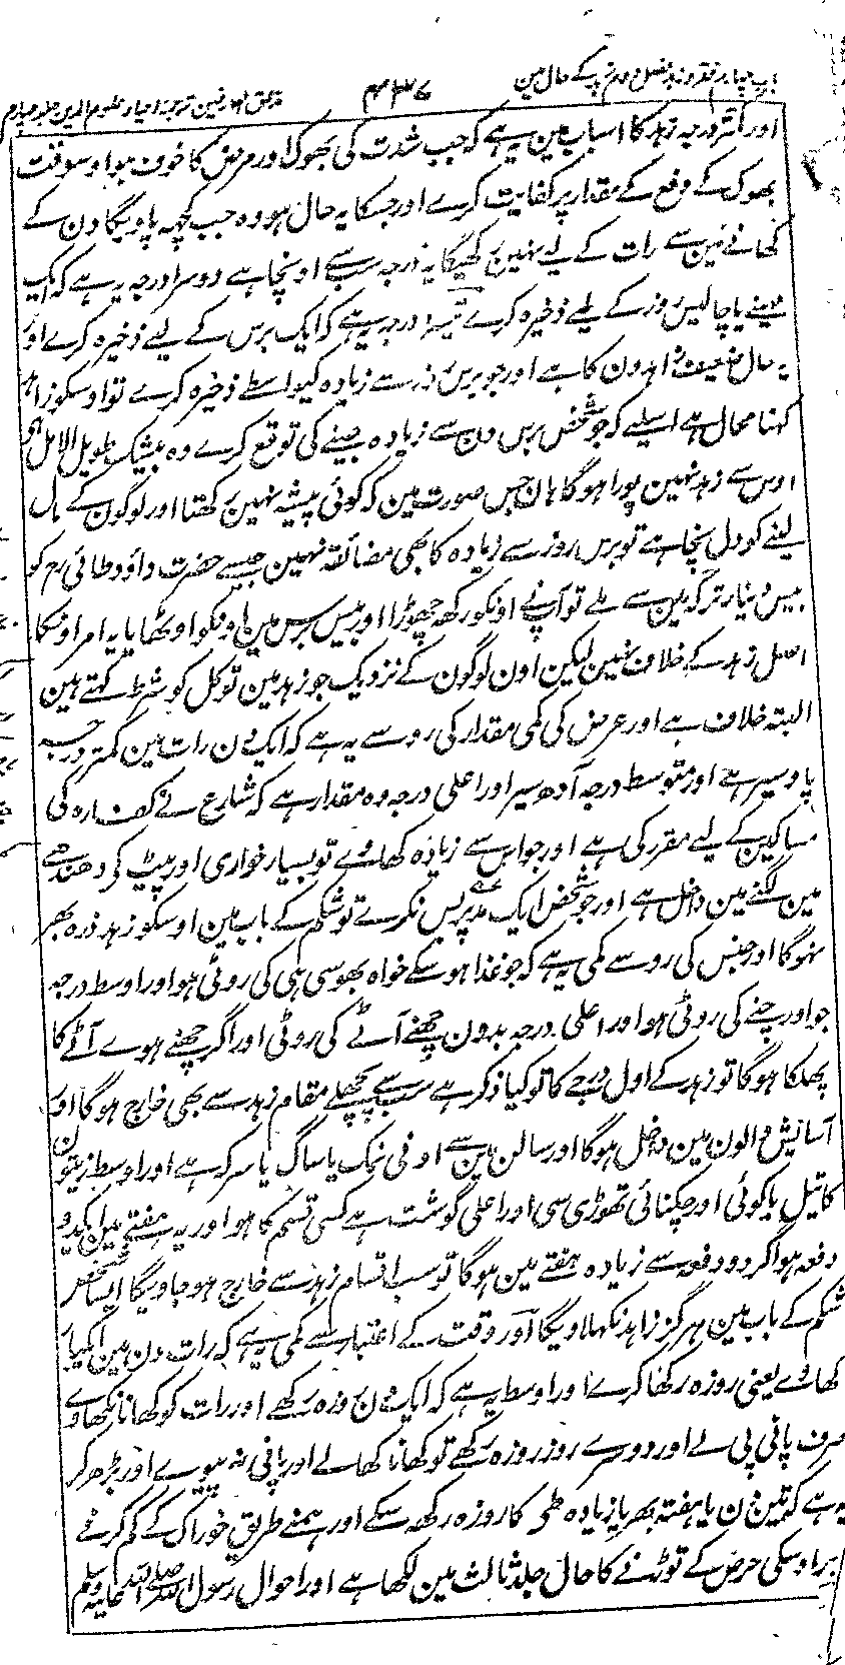 باب چہارم فقر و زہد فصل دوم زہد کے حال مین
۴۳۷
مذاق العارفین ترجمہ احیاء علوم الدین جلد چہارم
اور کمتر درجہ زہد کا اس باب مین یہ ہے کہ جب شدت کی بھوک اور مرض کا خوف ہو اوسوقت
بھوک کے دفع کے مقدار پر کفایت کرے اور جسکا یہ حال ہو وہ جب کچھ پاویگا دن کے
کھانے مین سے رات کے لیے نہین رکھیگا یہ درجہ سب سے اونچا ہے دوسرا درجہ یہ ہے کہ ایک
مہینے یا چالیس روز کے لیے ذخیرہ کرے تیسرا درجہ یہ ہے کہ ایک برس کے لیے ذخیرہ کرے اور
یہ حال ضعیف زاہدون کا ہے اور جو برس روز سے زیادہ کیواسطے ذخیرہ کرے تو اوسکو زاہد
کہنا محال ہے اسلیے کہ جو شخص برس دن سے زیادہ جینے کی توقع کرے وہ بیشک طویل الامل ہی
اوس سے زہد نہین پورا ہوگا ہان جس صورت مین کہ کوئی پیشہ نہین رکھتا اور لوگون کے مال
لینے کو دل نچاہے تو برس روز سے زیادہ کا بھی مضائقہ نہین جیسے حضرت داؤد طائی رح کو
بیس دینار ترکہ مین سے ملے تو آپنے اونکو رکھ چھوڑا اور بیس برس مین اونکو اوٹھایا یہ امر اونکا
اصل زہد کے خلاف نہین لیکن اون لوگون کے نزدیک جو زہد مین توکل کو شرط کہتے ہین
البتہ خلاف ہے اور عرض کی کمی مقدار کی رو سے یہ ہے کہ ایک دن رات مین کمتر درجہ
پاو سیر ہے اور متوسط درجہ آدھ سیر اور اعلی درجہ وہ مقدار ہے کہ شارع نے کفارہ کی
مساکین کے لیے مقرر کی ہے اور جو اس سے زیادہ کھاوے تو بسیار خواری اور پیٹ کی دھندھے
مین لگنے مین داخل ہے اور جو شخص ایک مد پر بس نکرے تو شکم کے باب مین اوسکو زہد ذرہ بھر
نہوگا اور جنس کی رو سے کمی یہ ہے کہ جو غذا ہو سکے خواہ بھوسی ہی کی روٹی ہو اور اوسط درجہ
جو اور چنے کی روٹی ہو اور اعلی درجہ بدون چھنے آٹے کی روٹی اور اگر چھنے ہوے آٹے کا
پھلکا ہوگا تو زہد کے اول درجے کا تو کیا ذکر ہے سب سے پچھلے مقام زہد سے بھی خارج ہوگا اور
آسایش والون مین داخل ہوگا اور سالن مین سے ادنی نمک یا ساگ یا سرکہ ہے اور اوسط زیتون
کا تیل یا کوئی اور چکنائی تھوڑی سی اور اعلی گوشت ہے کسی قسم کا ہو اور یہ ہفتے مین ایک دو
دفعہ ہو اگر دو دفعہ سے زیادہ ہفتے مین ہوگا تو سب اقسام زہد سے خارج ہو جاویگا ایسا شخص
شکم کے باب مین ہرگز زاہد نکہلاویگا اور وقت کے اعتبار سے کمی یہ ہے کہ رات دن مین ایکبار
کھاوے یعنی روزہ رکھا کرے اور اوسط یہ ہے کہ ایک دن روزہ رکھے اور رات کو کھانا نکھاوے
صرف پانی پی لے اور دوسرے روز روزہ رکھے تو کھانا کھالے اور پانی نہ پیوے اور بڑھکر
یہ ہے کہ تین دن یا ہفتہ بھر یا زیادہ طی کا روزہ رکھ سکے اور ہمنے طریق خوراک کے کم کرنے
اوسکی حرص کے توڑنے کا حال جلد ثالث مین لکھا ہے اور احوال رسول اللہ صلی اللہ علیہ وسلم